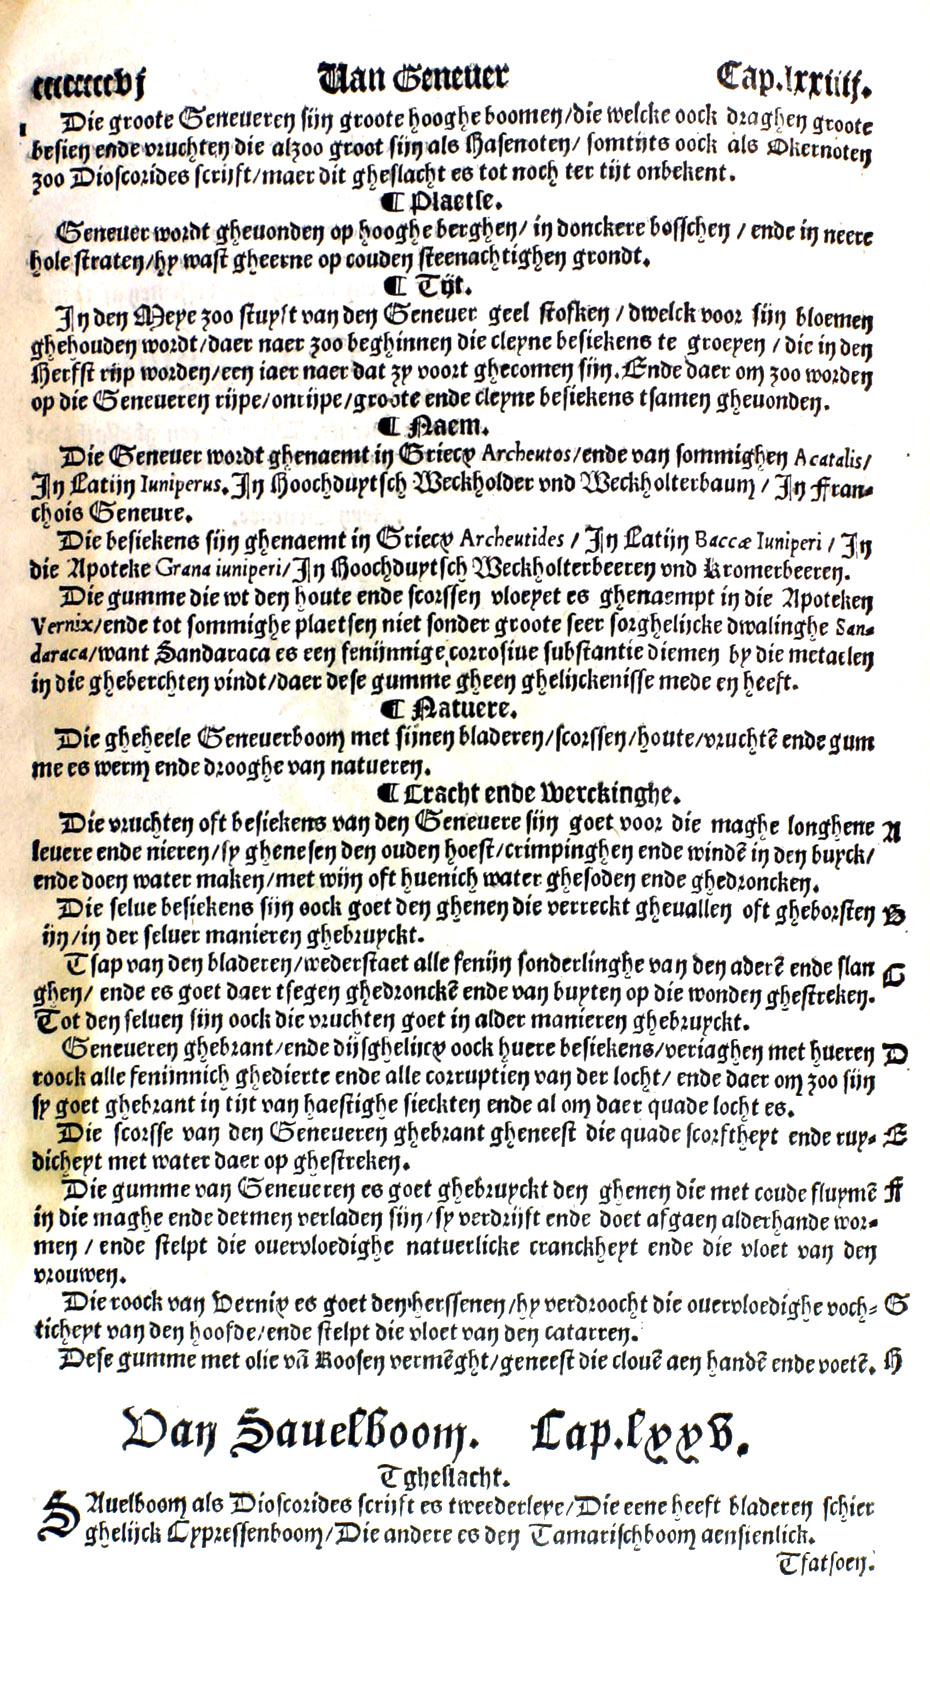 Van Geneuer Cap.lxxiiij.
Die groote Geneueren sijn groote hooghe boomen/die welcke oock draghen groote
besien ende vruchten die alzoo groot sijn als Hasenoten/ somtijts oock als Okernoten
zoo Dioscorides scrijft/maer dit gheslacht es tot noch ter tijt onbekent.
¶ Plaetse.
Geneuer wordt gheuonden op hooghe berghen/ in donckere bosschen / ende in neere
hole straten/hy wast gheerne op couden steenachtighen grondt.
¶ Tijt.
In den Meye zoo stuyft van den Geneuer geel stofken / dwelck voor sijn bloemen
ghehouden wordt/daer naer zoo beghinnen die cleyne besiekens te groeyen / die in den
Herfst rijp worden/een iaer naer dat zy voort ghecomen sijn. Ende daer om zoo worden
op die Geneueren rijpe/onrijpe/groote ende cleyne besiekens tsamen gheuonden.
¶ Naem.
Die Geneuer wordt ghenaemt in Griecx Archeutos/ende van sommighen Acatalis/
In Latijn Iuniperus. In Hoochduytsch Weckholder vnd Weckholterbaum / In Fran-
chois Geneure.
Die besiekens sijn ghenaemt in Griecx Archeutides / In Latijn Baccæ Iuniperi / In
die Apoteke Grana iuniperi/In Hoochduytsch Weckholterbeeren vnd Kromerbeeren.
Die gumme die wt den houte ende scorssen vloeyet es ghenaempt in die Apoteken
Vernix/ende tot sommighe plaetsen niet sonder groote seer sorghelijcke dwalinghe San-
daraca/want Sandaraca es een fenijnnige corrosiue substantie diemen by die metaelen
in die gheberchten vindt/daer dese gumme gheen ghelijckenisse mede en heeft.
¶ Natuere.
Die gheheele Geneuerboom met sijnen bladeren/scorssen/houte/vruchtē ende gum
me es werm ende drooghe van natueren.
¶ Cracht ende Werckinghe.
Die vruchten oft besiekens van den Geneuere sijn goet voor die maghe longhene A
leuere ende nieren/sy ghenesen den ouden hoest/crimpinghen ende windē in den buyck/
ende doen water maken/met wijn oft huenich water ghesoden ende ghedroncken.
Die selue besiekens sijn oock goet den ghenen die verreckt gheuallen oft gheborsten B
ijn/in der seluer manieren ghebruyckt.
Tsap van den bladeren/wederstaet alle fenijn sonderlinghe van den aderē ende slan C
ghen/ ende es goet daer tsegen ghedronckē ende van buyten op die wonden ghestreken.
Tot den seluen sijn oock die vruchten goet in alder manieren ghebruyckt.
Geneueren ghebrant/ende dijsghelijcx oock huere besiekens/veriaghen met hueren D
roock alle fenijnnich ghedierte ende alle corruptien van der locht/ ende daer om zoo sijn
sy goet ghebrant in tijt van haestighe sieckten ende al om daer quade locht es.
Die scorsse van den Geneueren ghebrant gheneest die quade scorftheyt ende ruy- E
dicheyt met water daer op ghestreken.
Die gumme van Geneueren es goet ghebruyckt den ghenen die met coude fluymē F
in die maghe ende dermen verladen sijn/sy verdrijft ende doet afgaen alderhande wor-
men / ende stelpt die ouervloedighe natuerlicke cranckheyt ende die vloet van den
vrouwen.
Die roock van Vernix es goet den herssenen/hy verdroocht die ouervloedighe voch- G
ticheyt van den hoofde/ende stelpt die vloet van den catarren.
Dese gumme met olie vā Roosen vermēght/geneest die clouē aen handē ende voetē. H
Van Sauelboom. Cap.lxxv.
Tgheslacht.
SAuelboom als Dioscorides scrijft es tweederleye/Die eene heeft bladeren schier
ghelijck Cypressenboom/Die andere es den Tamarischboom aensienlick.
Tfatsoen.